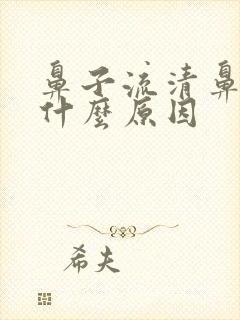 鼻子流清鼻
什麼原因
希夫